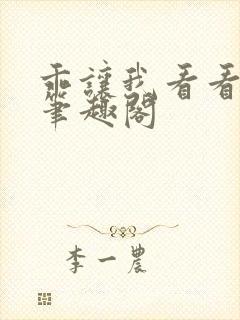 乖讓我看看
筆趣閣
李一農